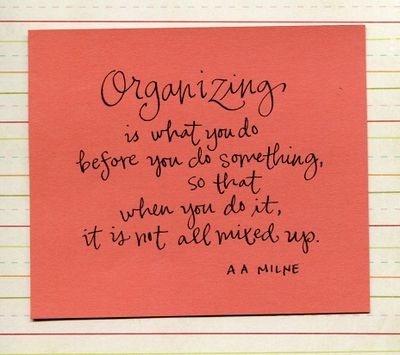 Organizing
is what you do
before you do something,
so that
when you do it,
it is not all mixed up.
A A MILNE